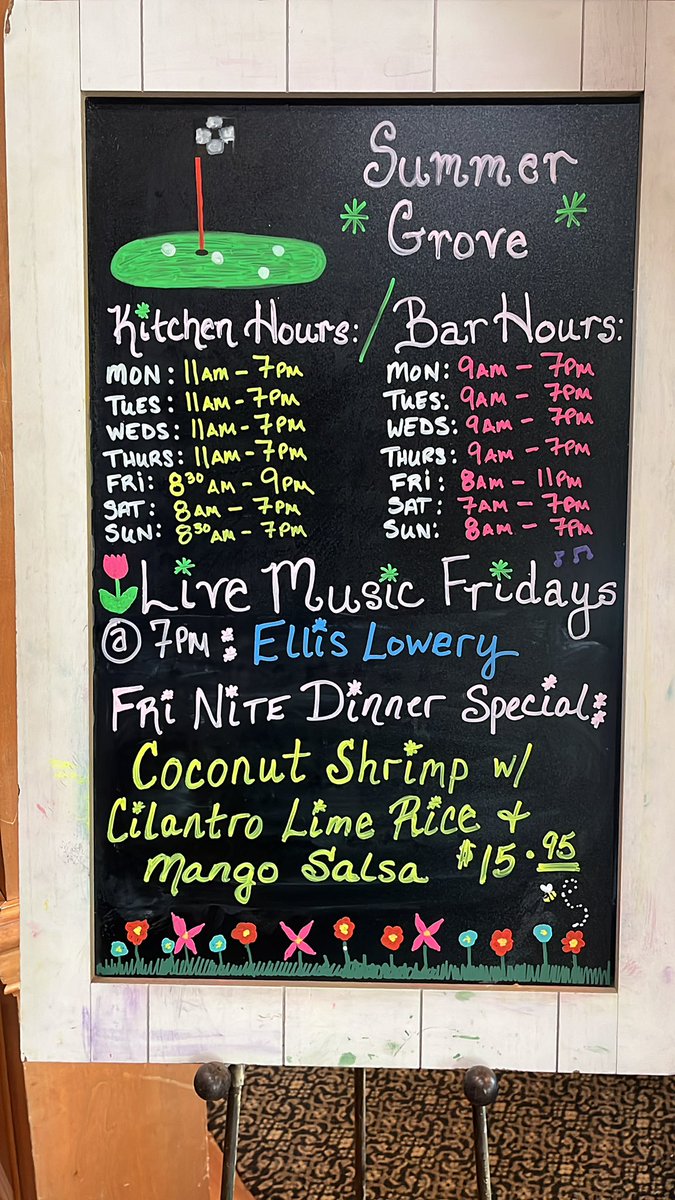 Summer
Grove
Kitchen Hours: / Bar Hours:
MON: 11AM - 7PM
TUES: 11AM - 7PM
WEDS: 11AM - 7PM
THURS: 11AM - 7PM
FRI: 8³⁰AM - 9PM
SAT: 8AM - 7PM
SUN: 8³⁰AM - 7PM
MON: 9AM - 7PM
TUES: 9AM - 7PM
WEDS: 9AM - 7PM
THURS: 9AM - 7PM
FRI: 8AM - 11PM
SAT: 7AM - 7PM
SUN: 8AM - 7PM
Live Music Fridays
@ 7PM: Ellis Lowery
FRI NITE Dinner Special:
Coconut Shrimp w/
Cilantro Lime Rice +
Mango Salsa $15.95